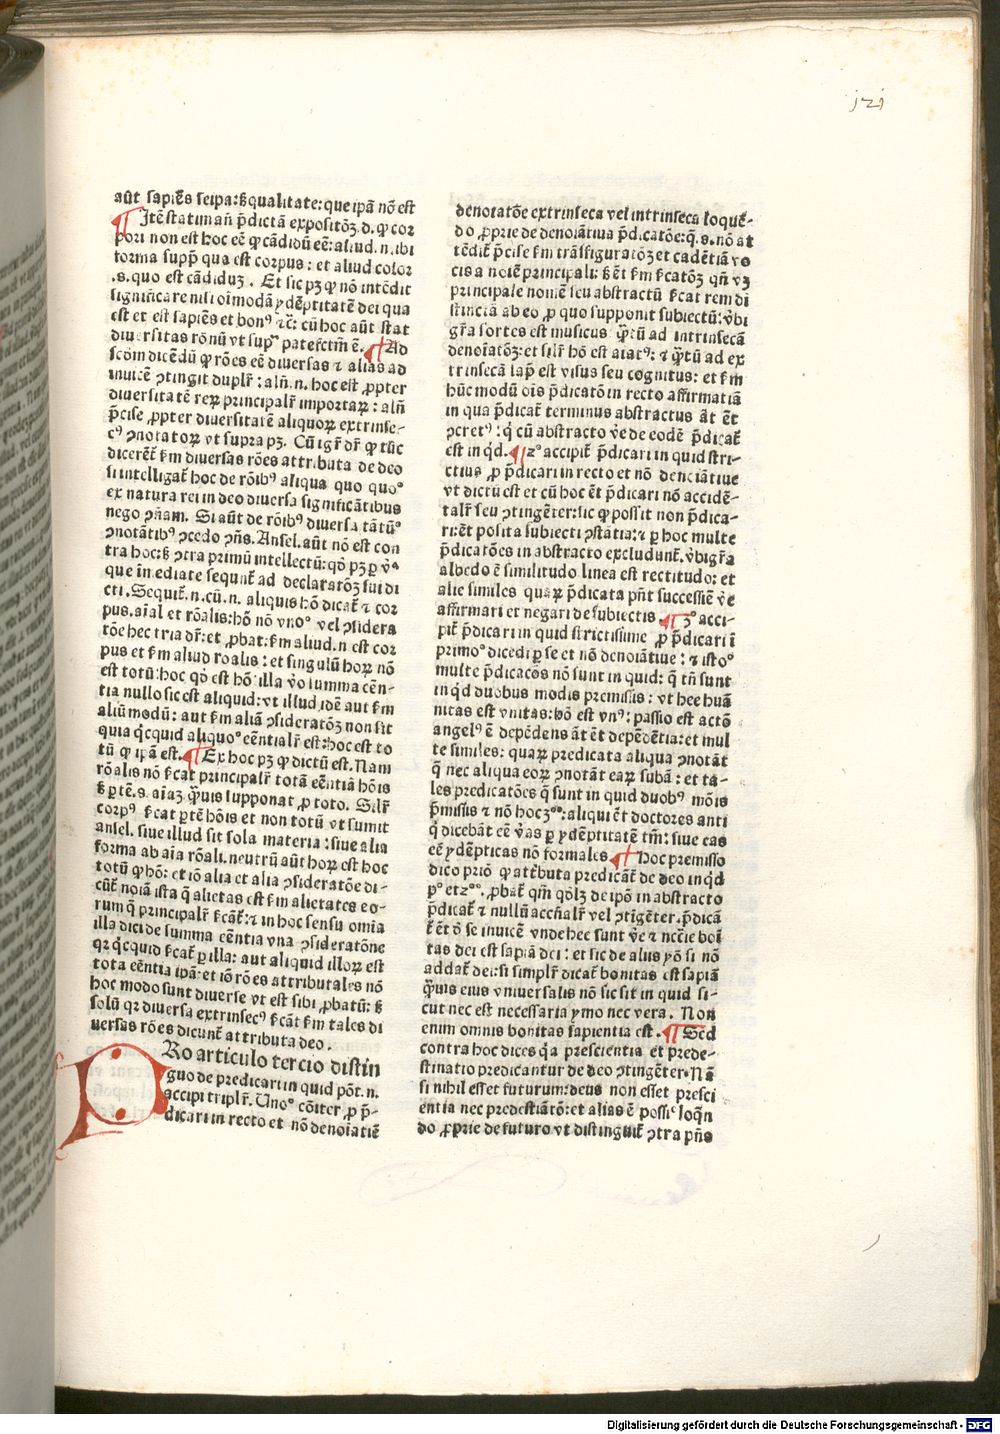 121
aūt sapiēs seipa: ꝑqualitate: que ipā nō est
¶ Itē statim añ p̄dictā expositōꝫ .d. ꝙ cor
pori non est hoc eē ꝙ cādidū eē: aliud .n. ibi
forma supp̄ qua est corpus: et aliud color
.s. quo est cādiduꝫ. Et sic pꝫ ꝙ nō intēdit
significare nisi oīmodā ydēptitatē dei qua
est et est sapiēs et bonꝰ ⁊c̄: cū hoc aūt stat
diuersitas rōnū vt supͣ patefctm̄ ē. ¶ Ad
scd̄m dicēdū ꝙ rōes eē diuersas ⁊ alias ad
inuicē ꝯtingit duplr̄: aln̄ .n. hoc est ꝓpter
diuersitatē reꝝ principalr̄ importaꝝ: aln̄
p̄cise ꝓpter diuersitatē aliquoꝝ extrinse-
cꝰ ꝯnotatoꝝ vt supra pꝫ. Cū igr̄ dr̄ ꝙ tūc
dicerēt̄ fm̄ diuersas rōes attributa de deo
si intelligat̄ hoc de rōibꝰ aliqua quo quoͦ
ex natura rei in deo diuersa significātibus
nego ꝯn̄am. Si aūt de rōibꝰ diuersa tātūͦ
ꝯnotātibꝰ ꝯcedo ꝯn̄s. Ansel. aūt nō est con
tra hoc: ꝑ ꝯtra primū intellectū: qd̓ pꝫ ꝑ v̓ͣ
que īmediate sequnt̄ ad declaratōꝫ sui di
cti. Sequit̄ .n. cū .n. aliquis hō dicat̄ ⁊ cor
pus. aīal et rōalis: hō nō vnoͦ vel ꝯsidera
tōe hec tria dr̄: et ꝓbat: fm̄ aliud .n. est cor
pus et fm̄ aliud roalis: et singulū hoꝝ nō
est totū: hoc qd̓ est hō illa v̓o summa cēn-
tia nullo sic est aliquid: vt illud idē aut fm̄
aliū modū: aut fm̄ aliā ꝯsideratōꝫ non sit
quia qͥcquid aliquoͦ eēntialr̄ est: hoc est to
tū ꝙ ipā est. ¶ Ex hoc pꝫ ꝙ dictū est. Nam
rōalis nō ſ̄cat principalr̄ totā eēntiā hōis
ꝑ ꝑtē .s. aīaꝫ qͣuis supponat ꝓ toto. Silr̄
corpꝰ ſ̄cat ꝑtē hōis et non totū vt sumit
ansel. siue illud sit sola materia: siue alia
forma ab aīa rōali. neutrū aūt hoꝝ est hoc
totū ꝙ hō: et iō alia et alia ꝯsideratōe di-
cūt̄ noīa ista qͣ alietas est fm̄ alietates eo-
rum qͣ principalr̄ ſ̄cāt̄: ⁊ in hoc sensu omīa
illa dici de summa eēntia vna ꝯsideratōne
qꝛ qͥcquid ſ̄cat̄ ꝑ illa: aut aliquid illoꝝ est
tota eēntia ipā: et iō rōes attributales nō
hoc modo sunt diuerse vt est sibi ꝓbatū: ꝑ
solū qꝛ diuersa extrinsecꝰ ſ̄cāt fm̄ tales di
uersas rōes dicunt̄ attributa deo.
PRo articulo tercio distin
guo de predicari in quid pōt .n.
accipi triplr̄. Unoͦ cōiter ꝓ p̄-
dicari in recto et nō denoīatiē
denoīatōe extrinseca vel intrinseca loquē-
do ꝓprie de denoīatiua p̄dicatōe: qͣ .s. nō at
tēdit̄ p̄cise fm̄ trāsfiguratōꝫ et cadētiā vo
cis a noīe principali: ꝑ ēt fm̄ ſ̄catōꝫ qn̄ vꝫ
principale nomē seu abstractū ſ̄cat rem di
stinctā ab eo ꝓ quo supponit subiectū: v̓bi
gr̄a sortes est musicus qͣtū ad intrinsecā
denoīatōꝫ: et silr̄ hō est aīatꝰ: ⁊ qͣtū ad ex
trinsecā lap̄ est visus seu cognitus: et fm̄
hūc modū oīs p̄dicatō in recto affirmatīa
in qua p̄dicat̄ terminus abstractus āt ēt
ꝯcretꝰ: qͥ cū abstracto v̓e de eodē p̄dicat̄
est in qͥd. ¶ 2ͦ accipit̄ p̄dicari in quid stri-
ctius ꝓ p̄dicari in recto et nō denoīatiue
vt dictū est et cū hoc ēt p̄dicari nō accidē-
talr̄ seu ꝯtingēter: sic ꝙ possit non p̄dica-
ri: ēt posita subiecti ꝯstātia: ⁊ ꝑ hoc multe
p̄dicatōes in abstracto excludunt̄. v̓bigr̄a
albedo ē similitudo linea est rectitudo: et
alie similes quaꝝ p̄dicata pn̄t successiē v̓e
affirmari et negari de subiectis. ¶ 3ͦ acci-
pit̄ p̄dicari in quid strictissime ꝓ p̄dicari ī
primoͦ dicēdi ꝑ se et nō denoīatiue: ⁊ istoͦ
multe p̄dicacōes nō sunt in quid: qͣ tn̄ sunt
in qͥd duobus modis premissis: vt hec huā
nitas est vnitas: hō est vnꝰ: passio est actō
angelꝰ ē depēdens āt ēt depēdētia: et mul
te similes: quaꝝ predicata aliqua ꝯnotāt
qͣ nec aliqua eoꝝ ꝯnotāt eaꝝ subā: et ta-
les predicatōes qͣ sunt in quid duobꝰ mōis
p̄missis ⁊ nō hoc 3ͦ: aliqui ēt doctores anti
qͥ dicebāt eē v̓as ꝑ ydēptitatē tm̄: siue eas
eē ydēpticas nō formales. ¶ Hoc premisso
dico priō ꝙ attributa predicāt̄ de deo in qͥd
pͦ et 2ͦ. ꝓbat̄ qm̄ qd̓lꝫ de ipō in abstracto
p̄dicat̄ ⁊ nullū accn̄alr̄ vel ꝯtīgēter. p̄dicā
t̄ ēt ō se inuicē vnde hec sunt v̓e ⁊ nccīe boī
tas dei est sapīa dei: et sic de aliis yō si nō
addat̄ dei: si simplr̄ dicat̄ bonitas est sapīa
qͣuis eius vniuersalis nō sic sit in quid si-
cut nec est necessaria ymo nec vera. Non
enim omnis bonitas sapientia est. ¶ Sed
contra hoc dices qͥa prescientia et prede-
stinatio predicantur de deo ꝯtingēter. Nā
si nihil esset futurum: deus non esset presci
entia nec predestīatō: et alias ē possiͨ loqn̄
do ꝓprie de futuro vt distinguit̄ ꝯtra pn̄s
Digitalisierung gefördert durch die Deutsche Forschungsgemeinschaft - DFG